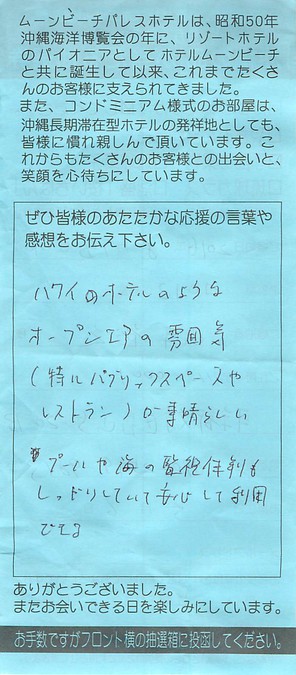 ムーンビーチパレスホテルは、昭和50年
沖縄海洋博覧会の年に、リゾートホテル
のパイオニアとしてホテルムーンビーチ
と共に誕生して以来、これまでたくさ
んのお客様に支えられてきました。
また、コンドミニアム様式のお部屋は、
沖縄長期滞在型ホテルの発祥地としても、
皆様に慣れ親しんで頂いています。こ
れからもたくさんのお客様との出会いと、
笑顔を心待ちにしています。
ぜひ皆様のあたたかな応援の言葉や
感想をお伝え下さい。
ハワイのホテルのような
オープンエアの雰囲気
(特にパブリックスペースや
レストラン)が素晴らしい
プールや海の監視体制も
しっかりしていて安心して利用
できる
ありがとうございました。
またお会いできる日を楽しみにしています。
お手数ですがフロント横の抽選箱に投函してください。